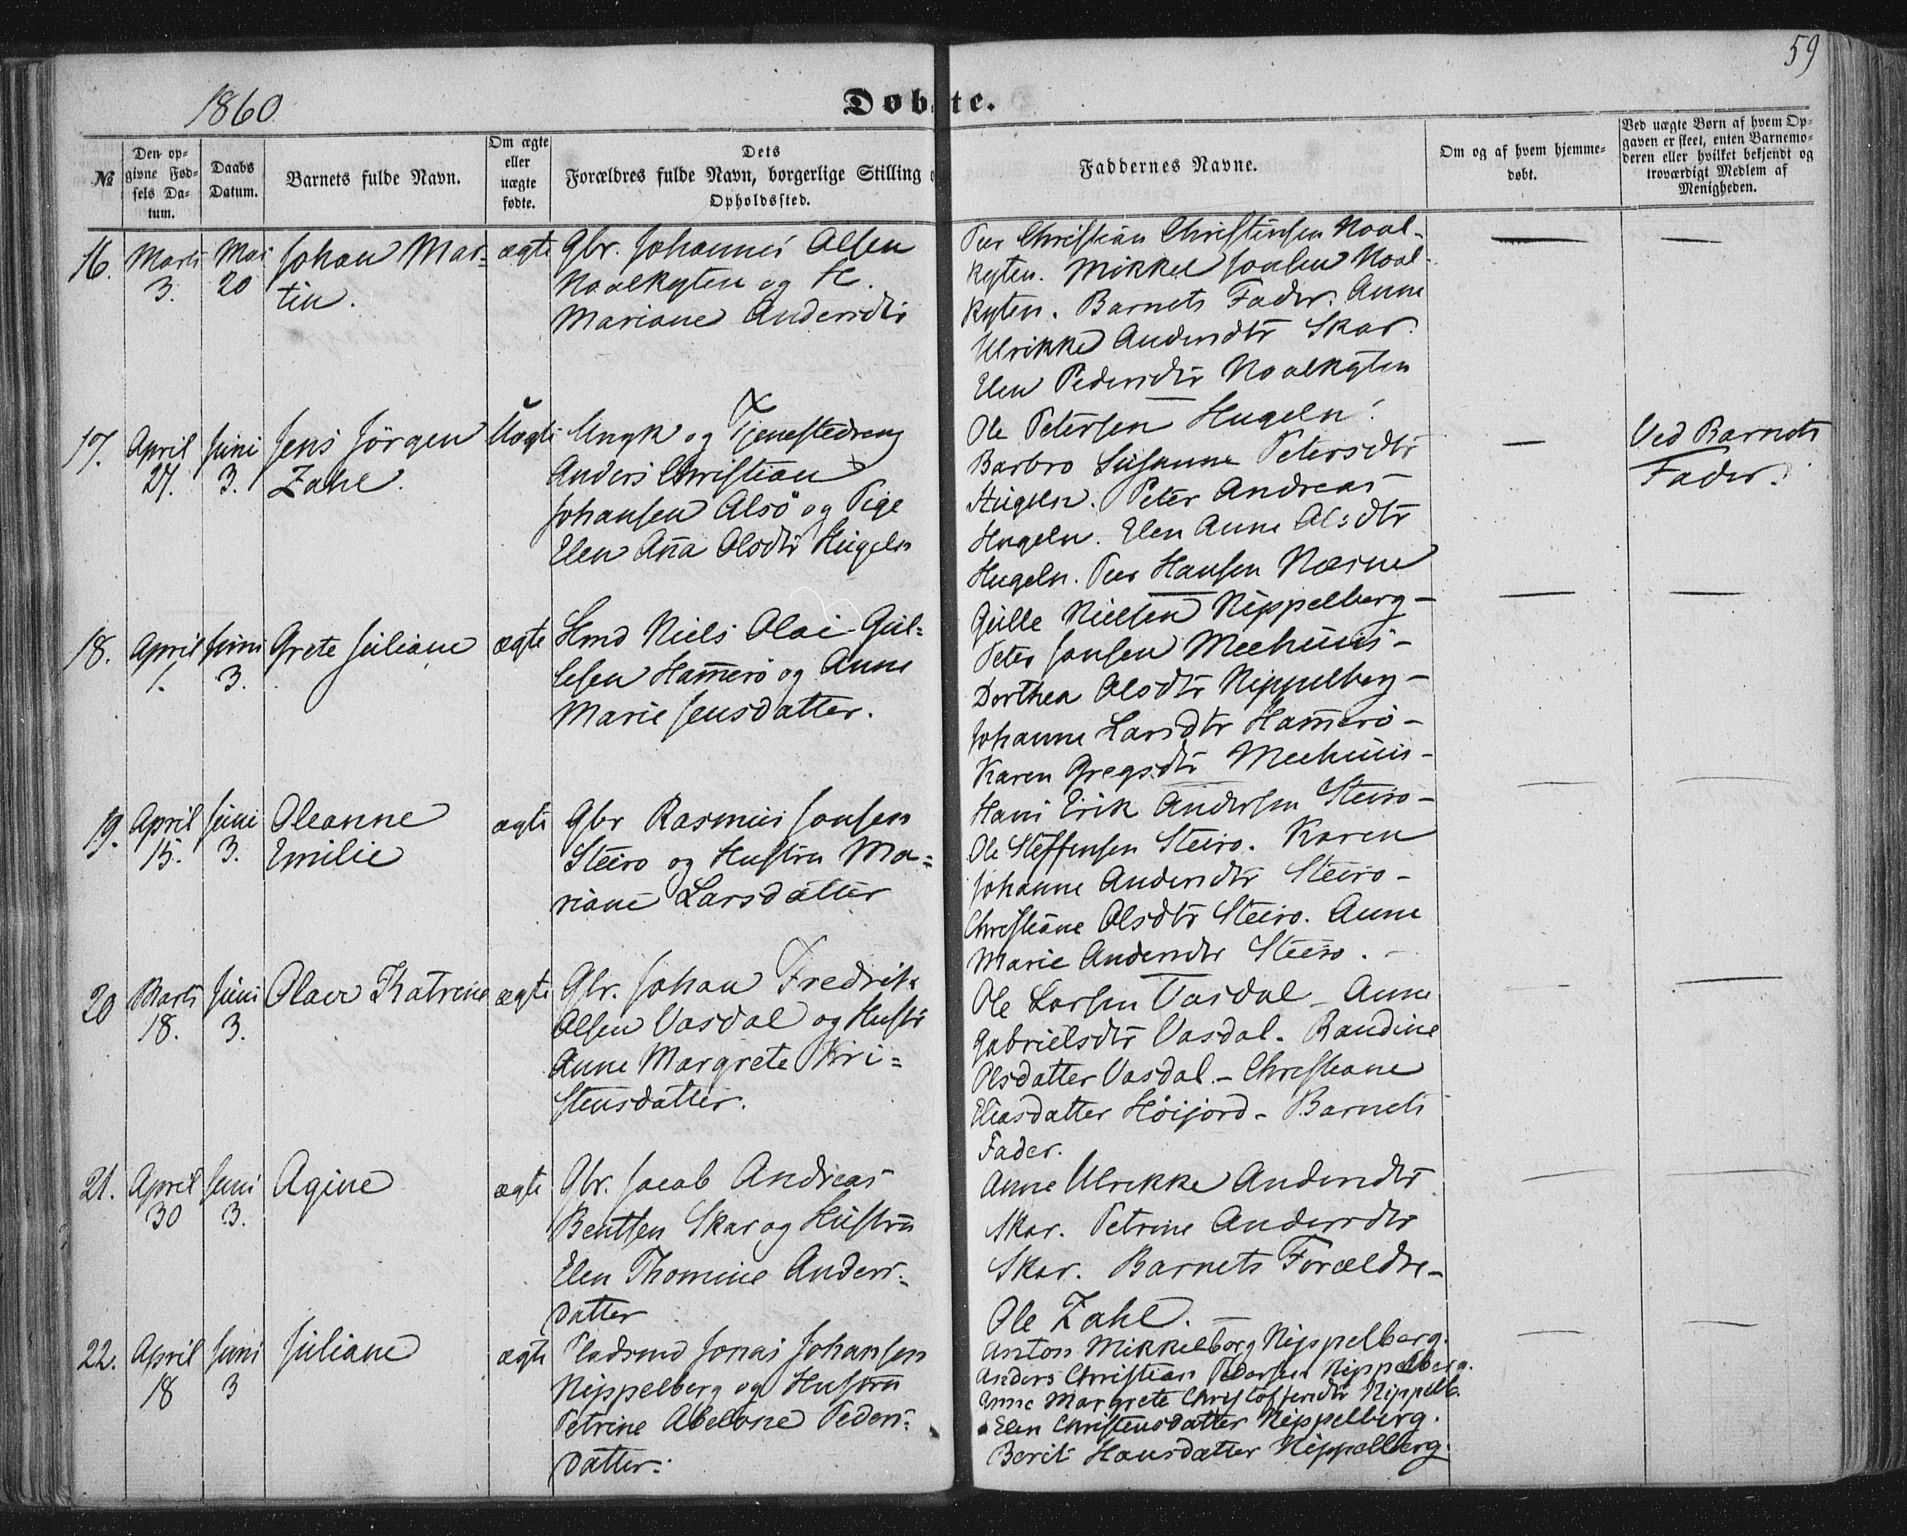 59
1860
Døbte.
№
Den opgivne Fødsels Datum.
Daabs Datum.
Barnets fulde Navn.
Om ægte eller uægte fødte.
Dets Forældres fulde Navn, borgerlige Stilling o
Opholdssted.
Faddernes Navne.
Om og af hvem hjemmedøbt.
Ved uægte Børn af hvem Opgaven er skeet, enten Barnemoderen eller hvilket bekjendt og troværdigt Medlem af Menigheden.
16. Marts 3. Mai 20 Johan Martin. ægte
Gbr. Johannes Olsen
Noalkyten og H.
Mariane Andersdtr
Peer Christian Christensen Noal-
kyten. Mikkel Jonsen Noal-
kyten. Barnets Fader. Anne
Ulrikke Andersdtr Skar.
Elen Pedersdtr Noalkyten
17. April 27. Juni 3. Jens Jörgen Zahl. Uægte
Ungk og Tjenestedreng
Anders Christian
Johansen Alsö og Pige
Elen Ana Olsdtr Hugeln
Ole Petersen Hugeln.
Barbro Susanne Petersdtr
Hugeln. Peter Andreas
Hugeln. Elen Anne Olsdtr
Hugeln. Peer Hansen Nærne
Ved Barnets
Fader.
18. April 1. Juni 3. Grete Juliane ægte
Hmd Niels Olai Gul-
lesen Hamerö og Anne
Marie Jensdatter.
Gulle Nielsen Nippelberg -
Peter Jonsen Meehuus -
Dorthea Olsdtr Nippelberg -
Johanne Larsdtr Hamerö -
Karen Gregsdtr Meehuus -
19. April 15. Juni 3. Oleanne Emilie ægte
Gbr Rasmus Jonsen
Steiro og Hustru Ma=
riane Larsdatter
Hans Erik Andersen Steiro -
Ole Steffensen Steiro. Karen
Johanne Andersdtr Steiro -
Christiane Olsdtr Steiro. Anne
Marie Andersdtr Steiro. -
20 Marts 18. Juni 3. Olava Katrine ægte
Gbr. Johan Fredrik
Olsen Vasdal og Hustr
Anne Margrete Kri=
stensdatter.
Ole Larsen Vasdal - Anne
Gabrielsdtr Vasdal. Randine
Olsdatter Vasdal. - Christiane
Eliasdatter Höijord - Barnets
Fader.
21. April 30 Juni 3. Agine ægte
Gbr. Jacob Andreas
Bentsen Skar og Hustru
Elen Thomine Anders=
datter
Anne Ulrikke Andersdtr
Skar. Petrine Andersdtr
Skar. Barnets Forældre -
Ole Zahl. -
22. April 18 Juni 3 Juliane ægte
Pladsmd Jonas Johansen
Nippelberg og Hustru
Petrine Abelone Peders-
datter.
Anton Mikkelborg Nippelberg.
Anders Christian Pedersen Nippelberg.
Anne Margrete Christoffersdtr Nippelb.
Elen Christensdatter Nippelberg.
Berit Hansdatter Nippelberg.